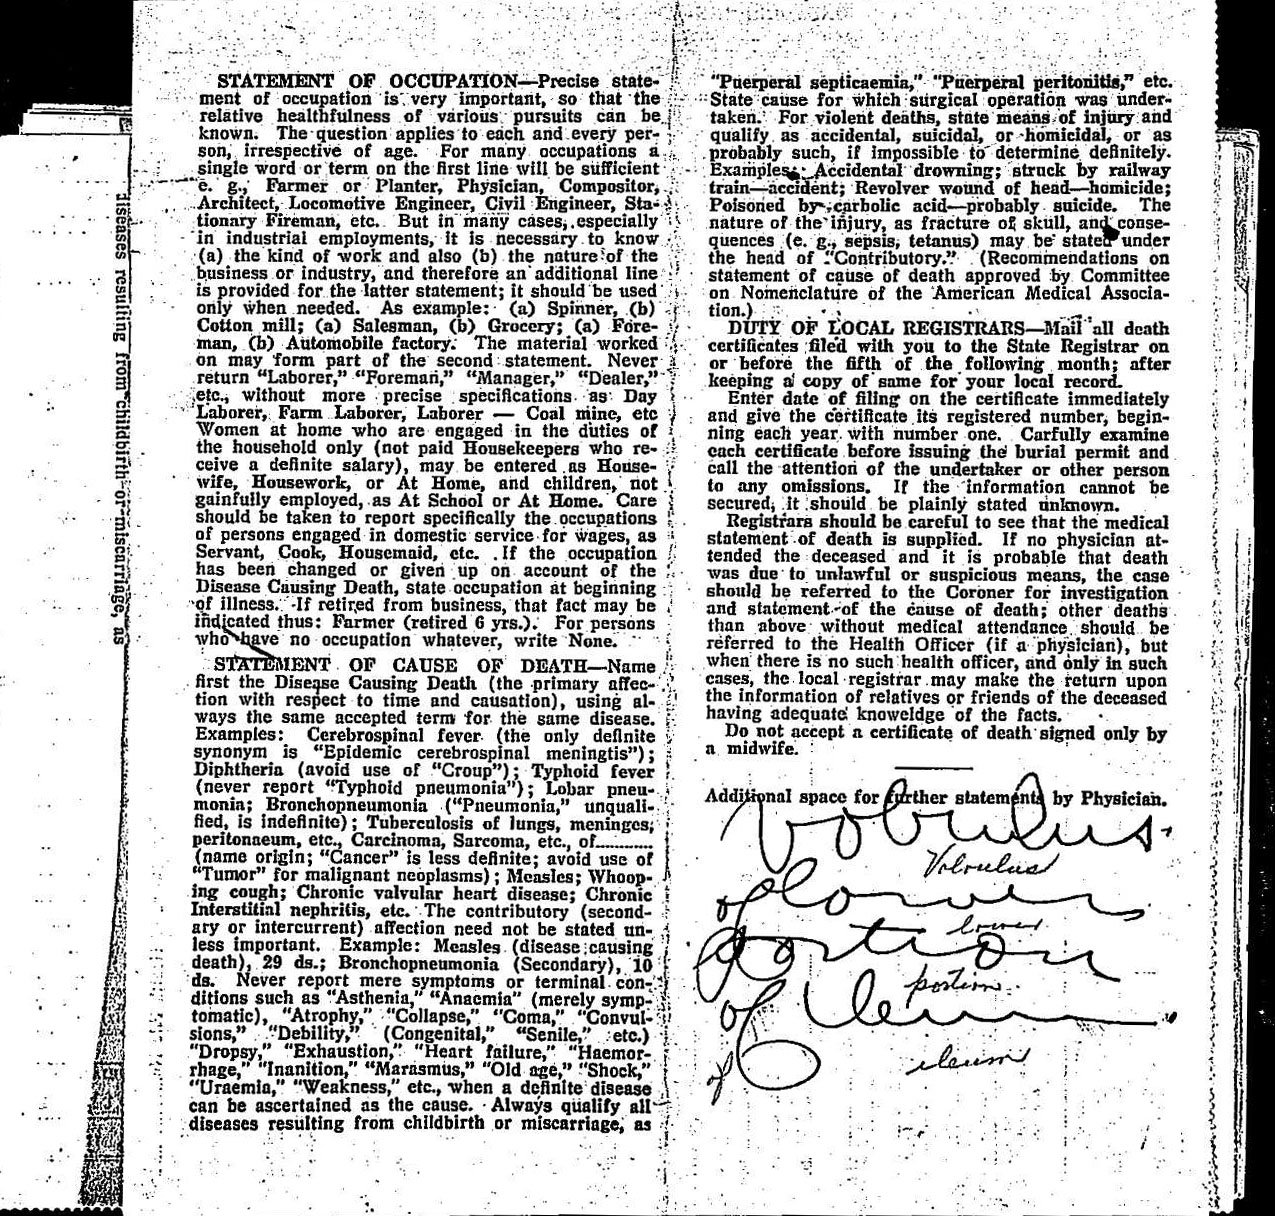 STATEMENT OF OCCUPATION—Precise state-
ment of occupation is very important, so that the
relative healthfulness of various pursuits can be
known. The question applies to each and every per-
son, irrespective of age. For many occupations a
single word or term on the first line will be sufficient
e. g., Farmer or Planter, Physician, Compositor,
Architect, Locomotive Engineer, Civil Engineer, Sta-
tionary Fireman, etc. But in many cases, especially
in industrial employments, it is necessary to know
(a) the kind of work and also (b) the nature of the
business or industry, and therefore an additional line
is provided for the latter statement; it should be used
only when needed. As example: (a) Spinner, (b)
Cotton mill; (a) Salesman, (b) Grocery; (a) Fore-
man, (b) Automobile factory. The material worked
on may form part of the second statement. Never
return "Laborer," "Foreman," "Manager," "Dealer,"
etc., without more precise specifications as Day
Laborer, Farm Laborer, Laborer — Coal mine, etc
Women at home who are engaged in the duties of
the household only (not paid Housekeepers who re-
ceive a definite salary), may be entered as House-
wife, Housework, or At Home, and children, not
gainfully employed, as At School or At Home. Care
should be taken to report specifically the occupations
of persons engaged in domestic service for wages, as
Servant, Cook, Housemaid, etc. If the occupation
has been changed or given up on account of the
Disease Causing Death, state occupation at beginning
of illness. If retired from business, that fact may be
indicated thus: Farmer (retired 6 yrs.). For persons
who have no occupation whatever, write None.
STATEMENT OF CAUSE OF DEATH—Name
first the Disease Causing Death (the primary affec-
tion with respect to time and causation), using al-
ways the same accepted term for the same disease.
Examples: Cerebrospinal fever (the only definite
synonym is "Epidemic cerebrospinal meningtis");
Diphtheria (avoid use of "Croup"); Typhoid fever
(never report "Typhoid pneumonia"); Lobar pneu-
monia; Bronchopneumonia ("Pneumonia," unquali-
fied, is indefinite); Tuberculosis of lungs, meninges,
peritonaeum, etc., Carcinoma, Sarcoma, etc., of............
(name origin; "Cancer" is less definite; avoid use of
"Tumor" for malignant neoplasms); Measles; Whoop-
ing cough; Chronic valvular heart disease; Chronic
Interstitial nephritis, etc. The contributory (second-
ary or intercurrent) affection need not be stated un-
less important. Example: Measles (disease causing
death), 29 ds.; Bronchopneumonia (Secondary), 10
ds. Never report mere symptoms or terminal con-
ditions such as "Asthenia," "Anaemia" (merely symp-
tomatic), "Atrophy," "Collapse," "Coma," "Convul-
sions," "Debility," (Congenital," "Senile," etc.)
"Dropsy," "Exhaustion," "Heart failure," "Haemor-
rhage," "Inanition," "Marasmus," "Old age," "Shock,"
"Uraemia," "Weakness," etc., when a definite disease
can be ascertained as the cause. Always qualify all
diseases resulting from childbirth or miscarriage, as
"Puerperal septicaemia," "Puerperal peritonitis," etc.
State cause for which surgical operation was under-
taken. For violent deaths, state means of injury and
qualify as accidental, suicidal, or homicidal, or as
probably such, if impossible to determine definitely.
Examples: Accidental drowning; struck by railway
train—accident; Revolver wound of head—homicide;
Poisoned by carbolic acid—probably suicide. The
nature of the injury, as fracture of skull, and conse-
quences (e. g., sepsis, tetanus) may be stated under
the head of "Contributory." (Recommendations on
statement of cause of death approved by Committee
on Nomenclature of the American Medical Associa-
tion.)
DUTY OF LOCAL REGISTRARS—Mail all death
certificates filed with you to the State Registrar on
or before the fifth of the following month; after
keeping a copy of same for your local record.
Enter date of filing on the certificate immediately
and give the certificate its registered number, begin-
ning each year with number one. Carfully examine
each certificate before issuing the burial permit and
call the attention of the undertaker or other person
to any omissions. If the information cannot be
secured, it should be plainly stated unknown.
Registrars should be careful to see that the medical
statement of death is supplied. If no physician at-
tended the deceased and it is probable that death
was due to unlawful or suspicious means, the case
should be referred to the Coroner for investigation
and statement of the cause of death; other deaths
than above without medical attendance should be
referred to the Health Officer (if a physician), but
when there is no such health officer, and only in such
cases, the local registrar may make the return upon
the information of relatives or friends of the deceased
having adequate knoweldge of the facts.
Do not accept a certificate of death signed only by
a midwife.
Additional space for further statements by Physician.
Volvulus
Volvulus
of lower
lower
portion
portion
of Ileum
ileum
of
diseases resulting from childbirth or miscarriage, as